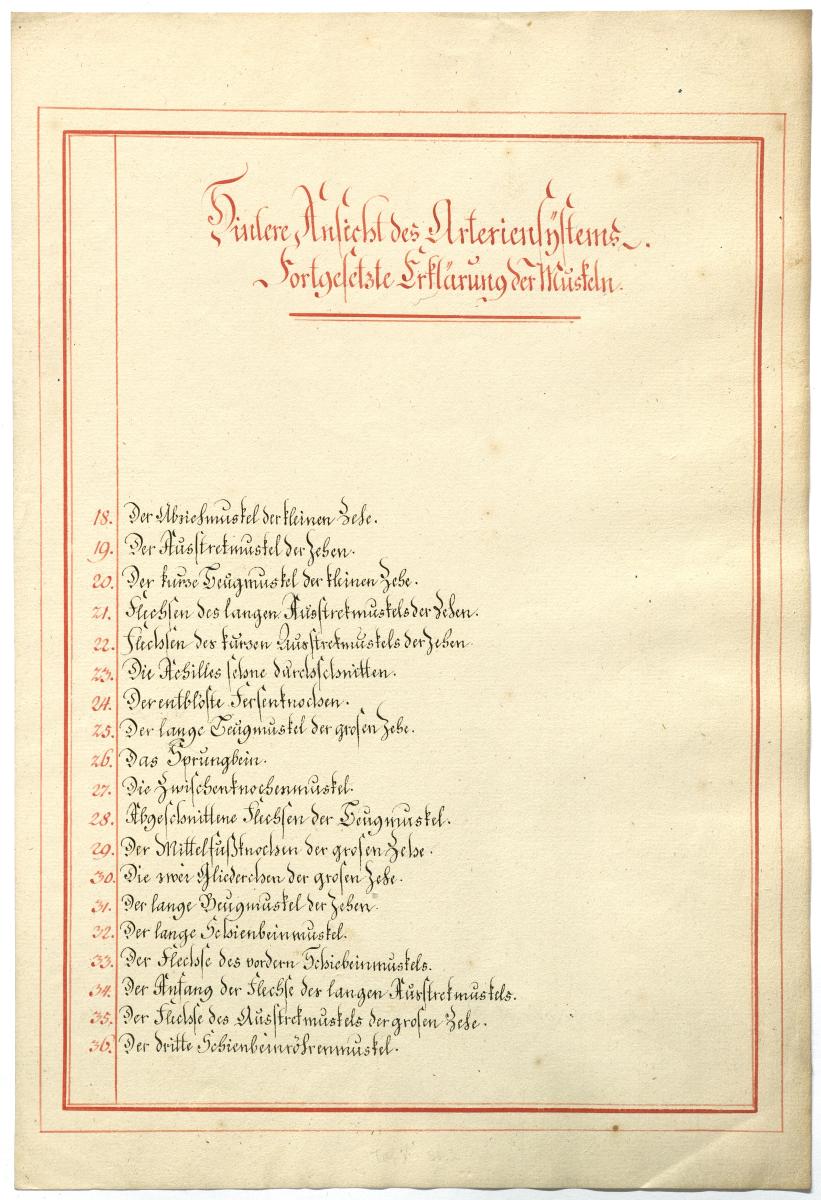 Hintere Ansicht des Arteriensÿstems.
Fortgesetzte Erklärung der Muskeln.
18. Der Abziehmuskel der kleinen Zehe.
19. Der Ausstrekmuskel der Zehen.
20. Der kurze Beugmuskel der kleinen Zehe.
21. Flechsen des langen Ausstrekmuskels der Zehen.
22. Flechsen des kurzen Ausstrekmuskels der Zehen.
23. Die Achilles sehne durchschnitten.
24. Der entblöste Fersenknochen.
25. Der lange Beugmuskel der grosen Zehe.
26. Das Sprungbein.
27. Die Zwischenknochenmuskel.
28. Abgeschnittene Flechsen der Beugmuskel.
29. Der Mittelfußknochen der grosen Zehe.
30. Die zwei Gliederchen der grosen Zehe.
31. Der lange Beugmuskel der Zehen.
32. Der lange Schienbeinmuskel.
33. Der Flechse des vordern Schiebeinmuskels.
34. Der Anfang der Flechse des langen Ausstrekmuskels.
35. Der Flechse des Ausstrekmuskels der grosen Zehe.
36. Der dritte Schienbeinröhrenmuskel.